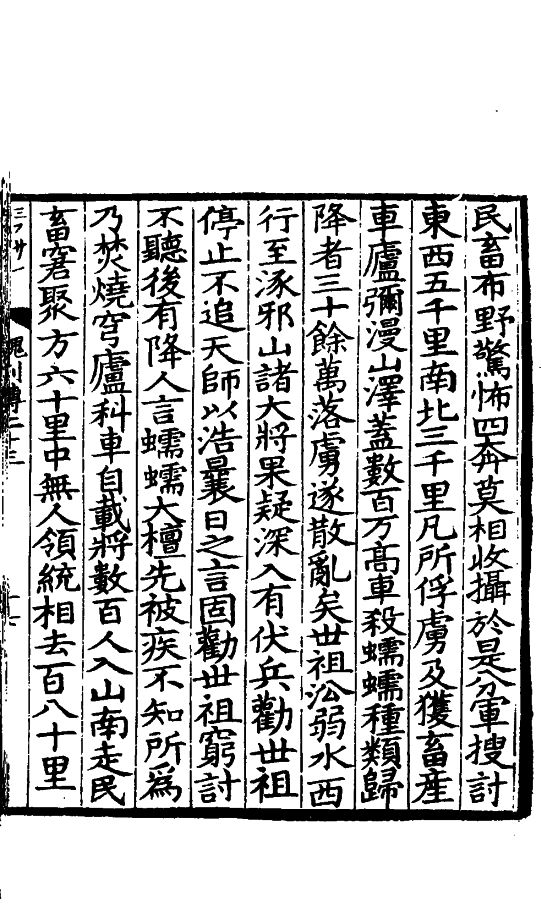 民畜布野驚怖四奔莫相收攝於是分軍搜討
東西五千里南北三千里凡所俘虜及獲畜産
車廬彌漫山澤蓋數百万高車殺蠕蠕種類歸
降者三十餘萬落虜遂散亂矣世祖㳂弱水西
行至涿邪山諸大將果疑深入有伏兵勸世祖
停止不追天師以浩曩日之言固勸世祖窮討
不聽後有降人言蠕蠕大檀先被疾不知所爲
乃焚燒穹廬科車自載將數百人入山南走民
畜窘聚方六十里中無人領統相去百八十里
傳二十三